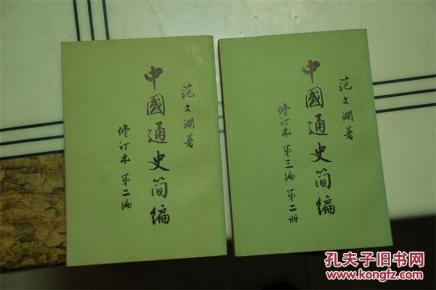 范文澜著
中國通史简编
修订本 第二编
范文澜著
中國通史简编
修订本 第三编 第二册
孔夫子旧书网
www.kongfz.com